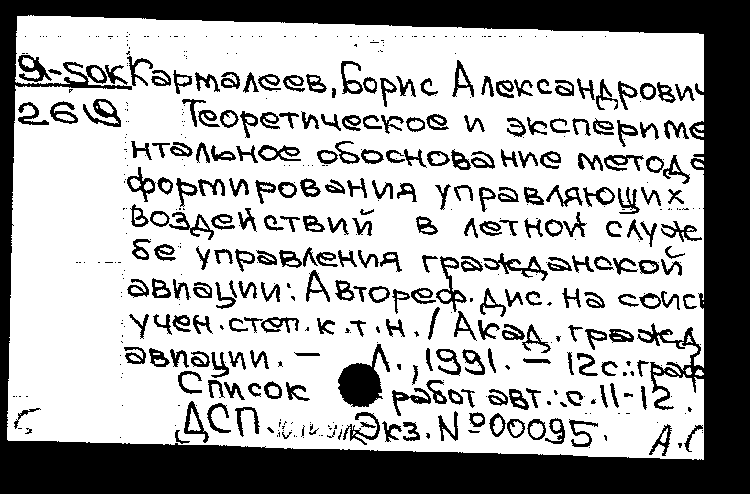 Я-50к Кармалеев, Борис Александрович
2619 Теоретическое и эксперимe
нтальное обоснование метода
формирования управляющих
воздействий в летной служе
бе управления гражданской
авиации: Автореф. дис. на соиск
учен. степ. к. т. н. / Акад. гражд
авиации. — Л., 1991. — 12 с.: граф
Список работ авт.: с. 11-12.
ДСП. Экз. № 00095.